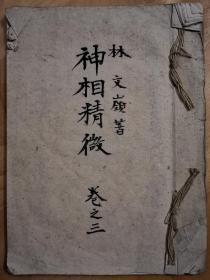 林文嶺著
神相精微
卷之三